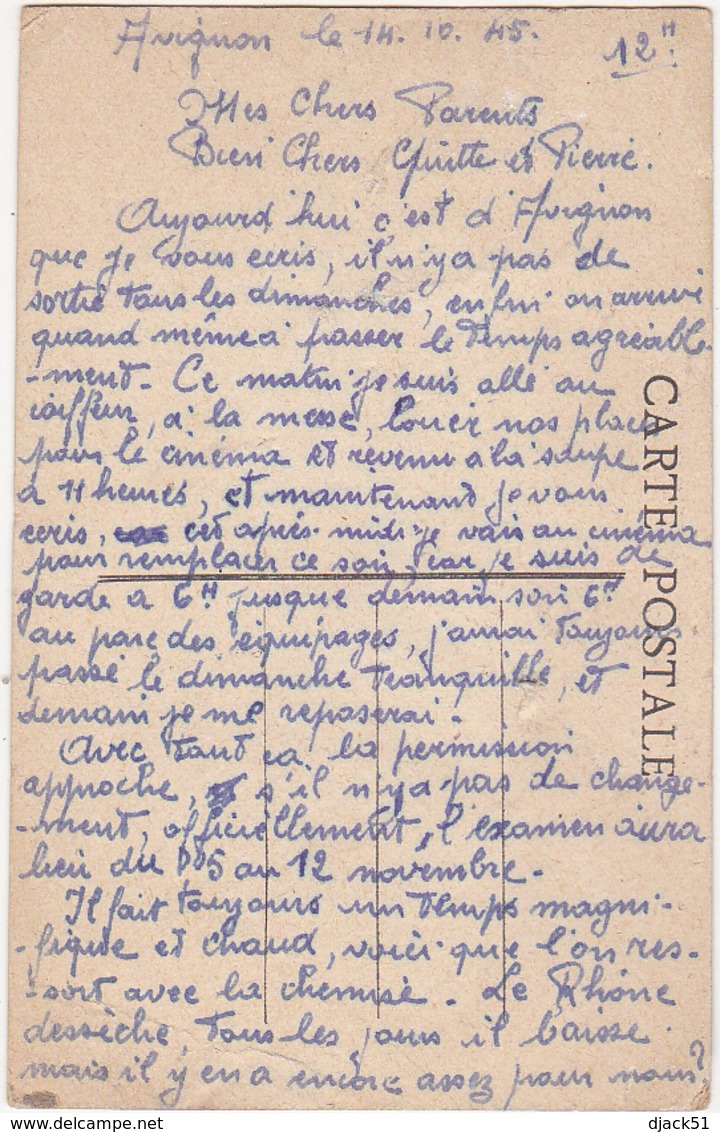 Avignon le 14.10.45.
12 H.
Mes Chers Parents
Bien Chers Ginette et Pierre.
Aujourd'hui c'est d'Avignon
que je vous ecris, il n'y a pas de
sortie tous les dimanches, enfin on arrive
quand même à passer le temps agréable-
-ment. Ce matin je suis allé au
coiffeur, à la messe, louer nos places
pour le cinéma et revenu à la soupe
à 11 heures, et maintenant je vous
ecris, cet après-midi je vais au cinéma
pour remplacer ce soir, car je suis de
garde à 6H jusque demain soir 6H
au parc des équipages, j'aurai toujours
passé le dimanche tranquille, et
demain je me reposerai.
Avec tout ça la permission
approche, s'il n'y a pas de change-
-ment, officiellement, l'examen aura
lieu du 5 au 12 novembre.
Il fait toujours un temps magni-
-fique et chaud, voici que l'on res-
-sort avec la chemise. Le Rhône
dessèche, tous les jours il baisse.
mais il y en a encore assez pour nous?
CARTE POSTALE
djack51